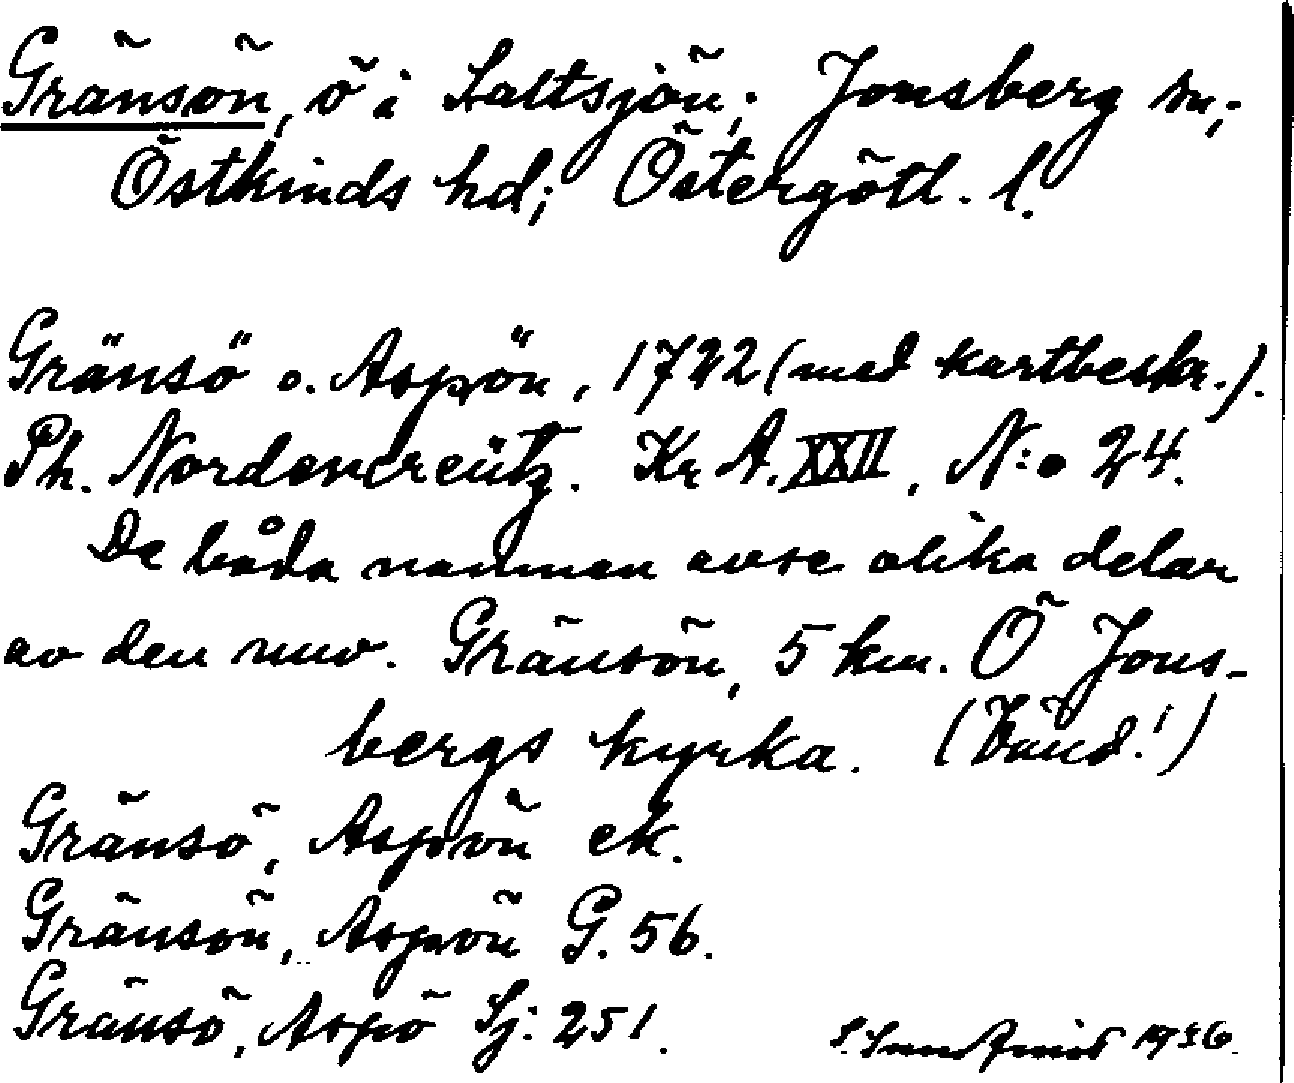 Gränsön, ö i Saltsjön; Jonsberg sn;
Östkinds hd; Östergötl. l.
Gränsö o. Aspön, 1722 (med kartbeskr.).
Ph. Nordencreütz. Kr A. XXII, N:o 24.
De båda namnen avse olika delar
av den nuv. Gränsön, 5 km. Ö Jons-
bergs kyrka. (Vänd!)
Gränsö, Aspön ek.
Gränsön, Aspön G. 56.
Gränsö, Aspö Sj: 251.
S. 1936.